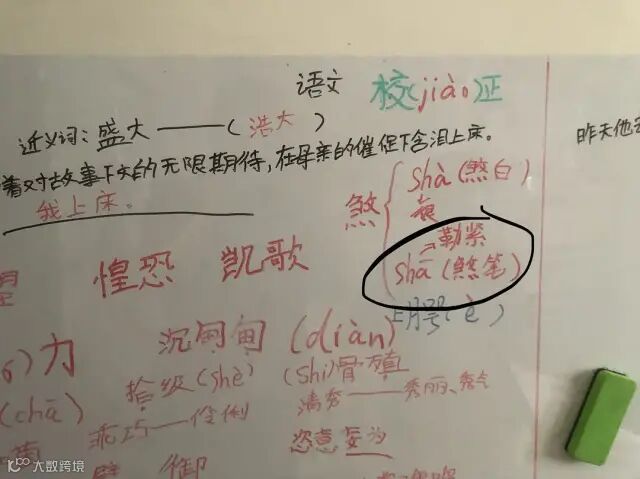 语文 校(jiào)正
近义词：盛大——（浩大）
着对故事下文的无限期待，在母亲的催促下含泪上床。
昨天他
我上床。
煞
shà(煞白)
→勒紧
shā(煞笔)
惶恐 凯歌
腭(è)
)力 沉甸甸(diàn)
拾级(shè) (shi)骨殖
(chā) 清秀——秀丽、秀气
乖巧——伶俐 恣意妄为
御
大数跨境